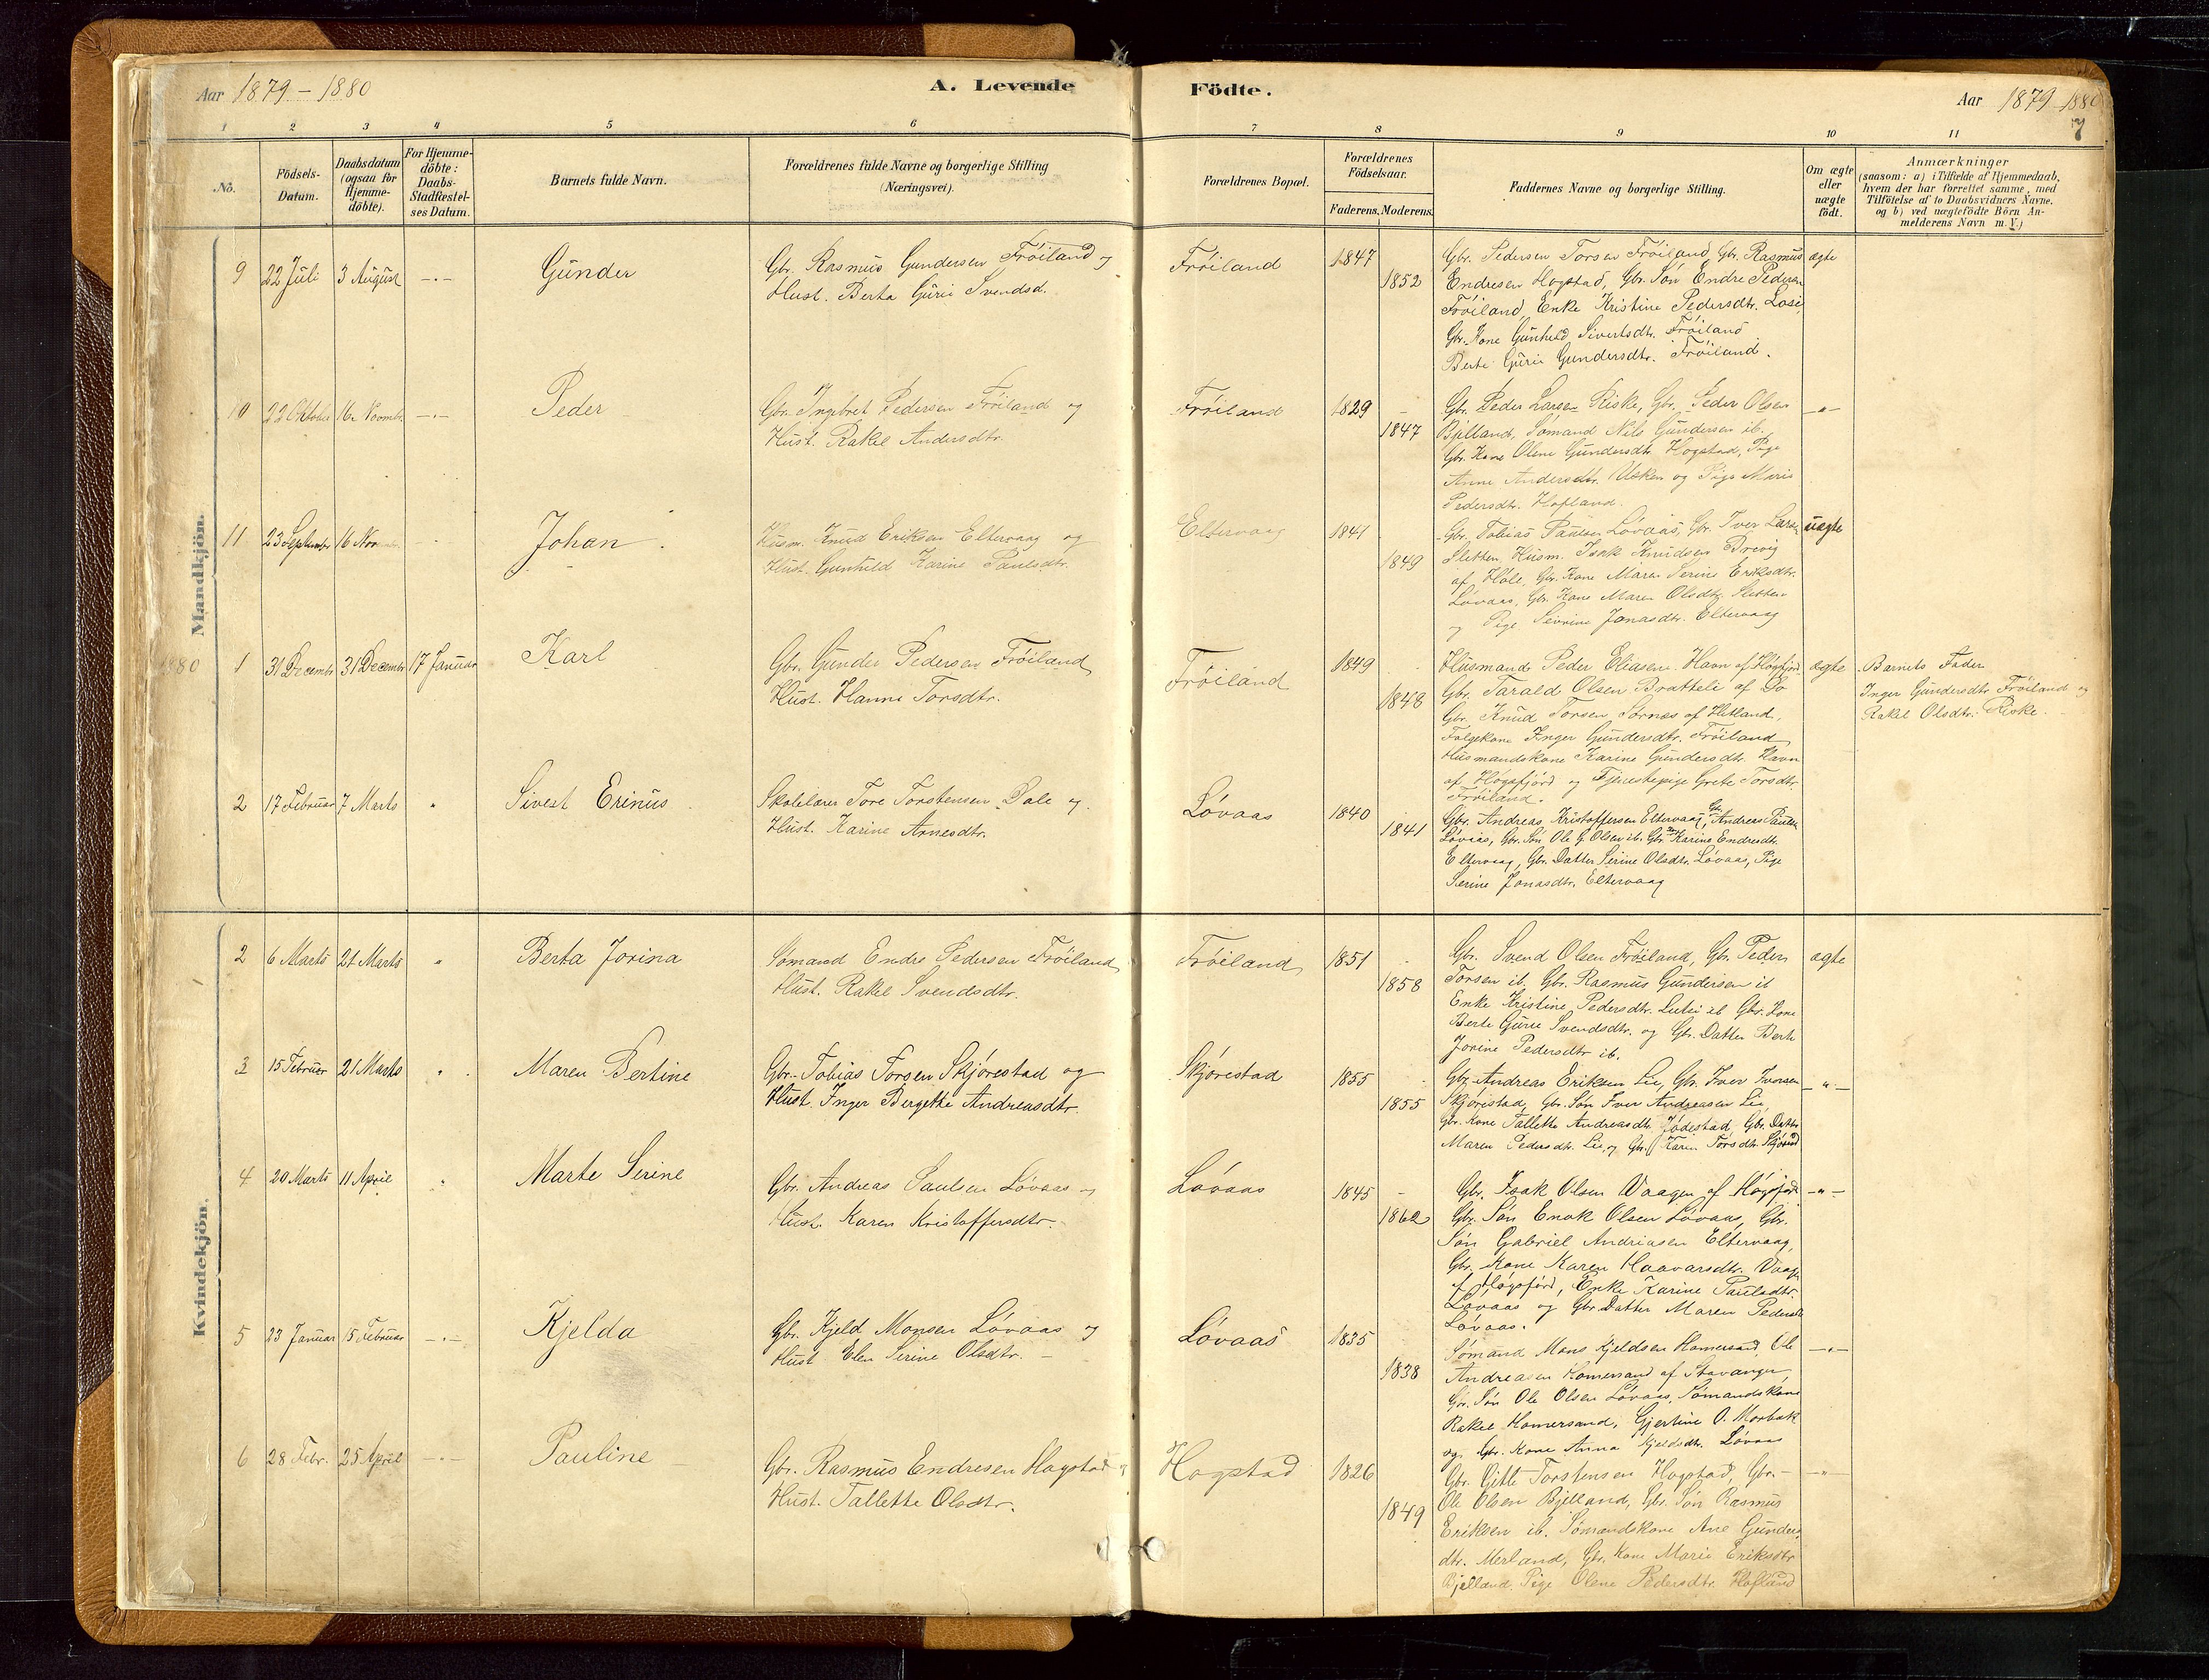 Aar 1879 - 1880
A. Levende
Födte.
Aar 1879 - 1880
7
1 2 3 4 5 6 7 8 9 10 11
No.
Födsels-Datum.
Daabsdatum (ogsaa for Hjemme-döbte).
For Hjemme-döbte: Daabs-Stadfæstel-ses Datum.
Barnets fulde Navn.
Forældrenes fulde Navne og borgerlige Stilling (Næringsvei).
Forældrenes Bopæl.
Forældrenes Födselsaar.
Faderens. Moderens.
Faddernes Navne og borgerlige Stilling.
Om ægte eller uægte födt.
Anmærkninger
(saasom: a) i Tilfælde af Hjemmedaab,
hvem der har forrettet samme, med
Tilföielse af to Daabsvidners Navne.
og b) ved uægtefödte Börn An-
melderens Navn m. V.)
Mandkjön.
9 22 Juli 3 August -"- Gunder
Gbr. Rasmus Gundersen Fröiland og
Hust. Berta Gurie Svendsd.
Fröiland 1847 1852
Gbr. Pedersen Torsen Fröiland, Gbr. Rasmus
Endresen Hogstad, Gbr. Søn Endre Pedersen
Fröiland, Enke Kristine Pedersdtr.
Gbr. Kone Gunhild Sivertsdtr. Fröiland
Berte Gurie Gundersdtr. Fröiland.
ægte
10 22 Oktober 16 Novembr -"- Peder
Gbr. Ingebret Pedersen Fröiland og
Hust. Rakel Andersdtr.
Fröiland 1829 1847
Gbr. Peder Larsen Riske, Gbr. Peder Olsen
Bjelland, Sømand Nils Gundersen ib.
Gbr. Kone Olene Gundersdtr. Hogstad, Pige
Anne Andersdtr. Usken og Pige Marie
Pedersdtr. Hofland.
-"-
11 23 Septembr 16 Nov Johan
Husm. Knud Eriksen Eltervaag og
Hust. Gunhild Karine Paulsdtr.
Eltervaag 1841 1849
Gbr. Tobias Paulsen Løvaas, Gbr. Iver Larsen
Sletten, Husm. Isak Knudsen Brevig
af Hole, Gbr. Kone Maren Serine Eriksdtr.
Løvaas, Gbr. Kone Maren Olsdtr. Sletten
og Pige Sivrine Jonasdtr. Eltervaag
uægte
1880
1 31 Decembr 31 Decembr 17 Januar Karl
Gbr. Gunder Pedersen Fröiland
Hust. Hanne Torsdtr.
Fröiland 1849 1848
Husmand Peder Eliasen Havn af Høgsfjord
Gbr. Tarald Olsen Bratteli af Do
Gbr. Knud Torsen Sørnes af Hetland,
Folgekone Inger Gundersdtr. Fröiland
Husmandskone Karine Gundersdtr. Havn
af Høgsfjord og Tjenestepige Grete Torsdtr.
Fröiland.
ægte
Barnets Fader
Inger Gundersdtr. Fröiland og
Rakel Olsdtr. Riske.
2 17 Februar 7 Marts " Sivert Erinus
Skolelærer Tore Torstensen Dale og
Hust. Karine Arnesdtr.
Løvaas 1840 1841
Gbr. Andreas Kristoffersen Eltervaag, Gbr. Andreas Paulsen
Løvaas, Gbr. Søn Ole G. Olsen ib. Gbr. Karine Endresdtr.
Eltervaag, Gbr. Datter Serine Olsdtr. Løvaas, Pige
Serine Jonasdtr. Eltervaag
Kvindekjön.
2 6 Marts 21 Marts " Berta Jorina
Sømand Endre Pedersen Fröiland
Hust. Rakel Svendsdtr.
Fröiland 1851 1858
Gbr. Svend Olsen Fröiland, Gbr. Peder
Torsen ib. Gbr. Rasmus Gundersen ib
Enke Kristine Pedersdtr. ib Gbr. Kone
Berte Gurie Svendsdtr. og Gbr. Datter Berte
Jorine Pedersdtr ib.
ægte
3 15 Februar 21 Marts " Maren Bertine
Gbr. Tobias Torsen Skjørestad og
Hust. Inger Bergette Andreasdtr.
Skjørestad 1855 1855
Gbr. Andreas Eriksen Lie, Gbr. Iver Iversen
Skjørestad, Gbr. Søn Iver Andreasen Lie,
Gbr. Kone Tallette Andreasdtr. Jødestad, Gbr. Datter
Maren Pedersdtr. Lie, og Gbr. Karin Torsdtr. Skjørestd
-"-
4 20 Marts 11 April " Marte Serine
Gbr. Andreas Paulsen Løvaas og
Hust. Karen Kristoffersdtr.
Løvaas 1845 1862
Gbr. Isak Olsen Vaagen af Høgsfjord
Gbr. Søn Enok Olsen Løvaas, Gbr.
Søn Gabriel Andreasen Eltervaag,
Gbr. Kone Karen Haavarsdtr. Vaage
af Høgsfjord, Enke Karine Paulsdtr.
Løvaas og Gbr. Datter Maren Pedersdtr
Løvaas.
-"-
5 23 Januar 15 Februar -"- Kjelda
Gbr. Kjeld Monsen Løvaas og
Hust. Elen Serine Olsdtr.
Løvaas 1835 1838
Sømand Mons Kjeldsen Homersand, Ole
Andreasen Homersand af Stavanger
Gbr. Søn Ole Olsen Løvaas, Sømandskone
Rakel Homersand, Gjertine O. Morbak
og Gbr. Kone Anna Kjeldsdtr. Løvaas
-"-
6 28 Febr. 25 April -"- Pauline
Gbr. Rasmus Endresen Hogstad og
Hust. Tallette Olsdtr.
Hogstad 1826 1849
Gbr. Gitle Torstensen Hogstad, Gbr.
Ole Olsen Bjelland, Gbr. Søn Rasmus
Eriksen ib. Sømandskone Ane Gunders
dtr. Merland, Gbr. Kone Marie Eriksdtr
Bjelland. Pige Olene Pedersdtr. Hofland
-"-